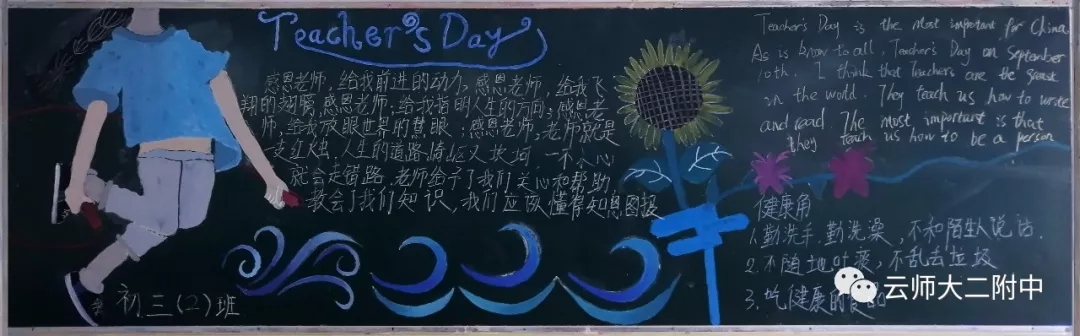 Teacher's Day
感恩老师,给我前进的动力,感恩老师,给我飞
翔的翅膀,感恩老师,给我指明人生的方向;感恩老
师,给我放眼世界的慧眼;感恩老师,老师就是
一支红烛,人生的道路崎岖又坎坷 一不小心
就会走错路.老师给予了我们关心和帮助.
教会了我们知识,我们应该懂得知恩图报
初三(2)班
Teacher's Day is the most important for China
As is know to all, Teacher's Day on September
10th. I think that Teachers are the
in the world. They teach us how to write
and read The most important is that
they teach us how to be a person
健康角
1.勤洗手.勤洗澡,不和陌生人说话.
2.不随地吐痰,不乱丢垃圾
3.吃健康的
云师大二附中